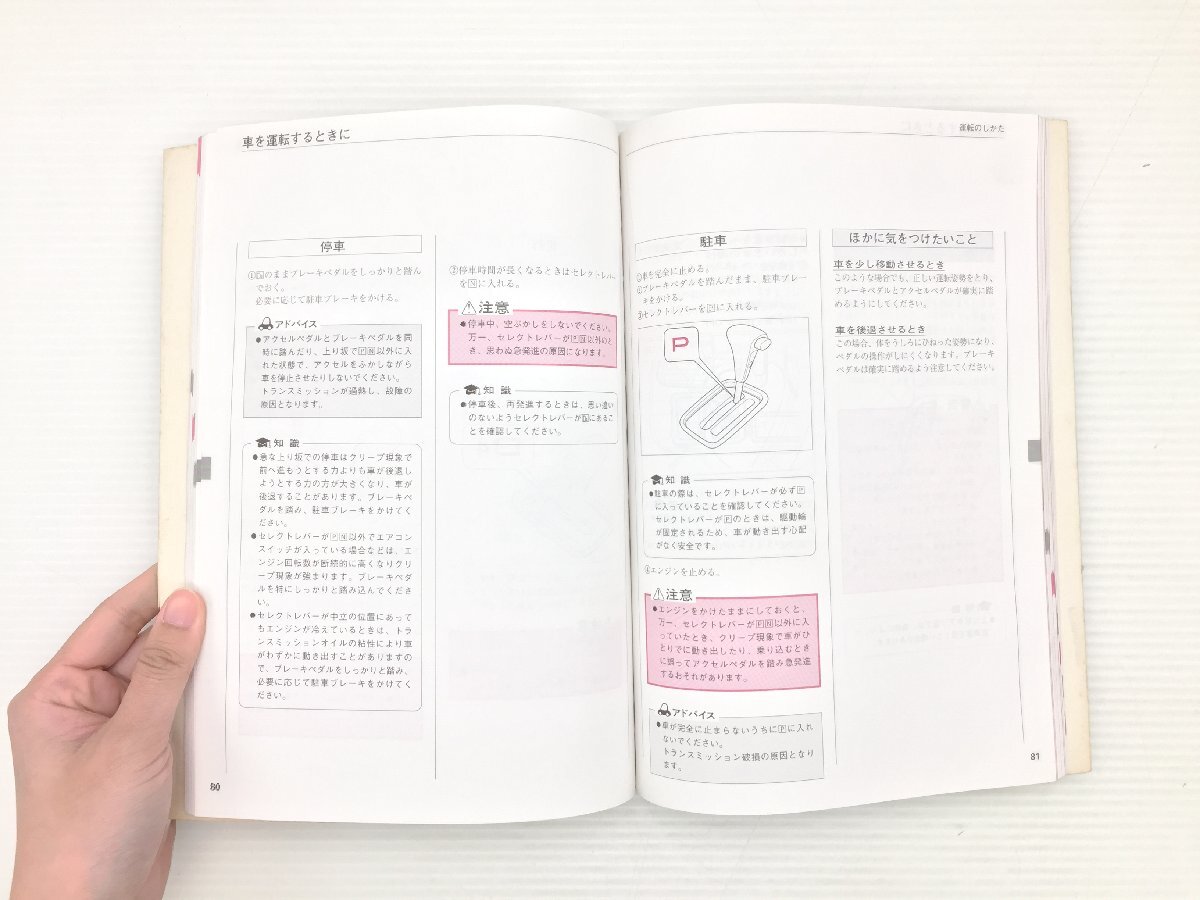 車を運転するときに
停車
①Ⓓのままブレーキペダルをしっかりと踏ん
でおく。
必要に応じて駐車ブレーキをかける。
アドバイス
●アクセルペダルとブレーキペダルを同
時に踏んだり、上り坂でPN以外に入
れた状態で、アクセルをふかしながら
車を停止させたりしないでください。
トランスミッションが過熱し、故障の
原因となります。
知 識
●急な上り坂での停車はクリープ現象で
前へ進もうとする力よりも車が後退し
ようとする力の方が大きくなり、車が
後退することがあります。ブレーキペ
ダルを踏み、駐車ブレーキをかけてく
ださい。
●セレクトレバーがPN以外でエアコン
スイッチが入っている場合などは、エ
ンジン回転数が断続的に高くなりクリ
ープ現象が強まります。ブレーキペダ
ルを特にしっかりと踏み込んでくださ
い。
●セレクトレバーが中立の位置にあって
もエンジンが冷えているときは、トラ
ンスミッションオイルの粘性により車
がわずかに動き出すことがありますの
で、ブレーキペダルをしっかりと踏み、
必要に応じて駐車ブレーキをかけてく
ださい。
80
②停車時間が長くなるときはセレクトレバー
をNに入れる。
注意
●停車中、空ぶかしをしないでください。
万一、セレクトレバーがPN以外のと
き、思わぬ急発進の原因になります。
知 識
●停車後、再発進するときは、思い違い
のないようセレクトレバーがDにあるこ
とを確認してください。
運転のしかた
駐車
①車を完全に止める。
②ブレーキペダルを踏んだまま、駐車ブレー
キをかける。
③セレクトレバーをPに入れる。
P
知 識
●駐車の際は、セレクトレバーが必ずP
に入っていることを確認してください。
セレクトレバーがPのときは、駆動輪
が固定されるため、車が動き出す心配
がなく安全です。
④エンジンを止める。
注意
●エンジンをかけたままにしておくと、
万一、セレクトレバーがPN以外に入
っていたとき、クリープ現象で車がひ
とりでに動き出したり、乗り込むとき
に誤ってアクセルペダルを踏み急発進
するおそれがあります。
アドバイス
●車が完全に止まらないうちにPに入れ
ないでください。
トランスミッション破損の原因となり
ます。
ほかに気をつけたいこと
車を少し移動させるとき
このような場合でも、正しい運転姿勢をとり、
ブレーキペダルとアクセルペダルが確実に踏
めるようにしてください。
車を後退させるとき
この場合、体をうしろにひねった姿勢になり、
ペダルの操作がしにくくなります。ブレーキ
ペダルは確実に踏めるよう注意してください。
81